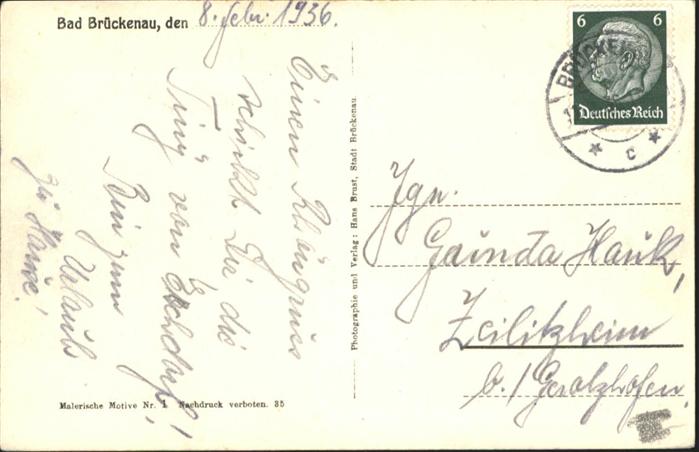 Bad Brückenau, den 8. Febr. 1936.
Einen
schickt Dir die
von
Bin zum
Urlaub
zu Hause!
Photographie und Verlag: Hans Brust, Stadt Brückenau
Malerische Motive Nr. 1 Nachdruck verboten. 35
6 6
Deutsches Reich
BRÜCKEN
c
Jgn.
Hauk,
Zeilitzheim
b./Gerolzhofen